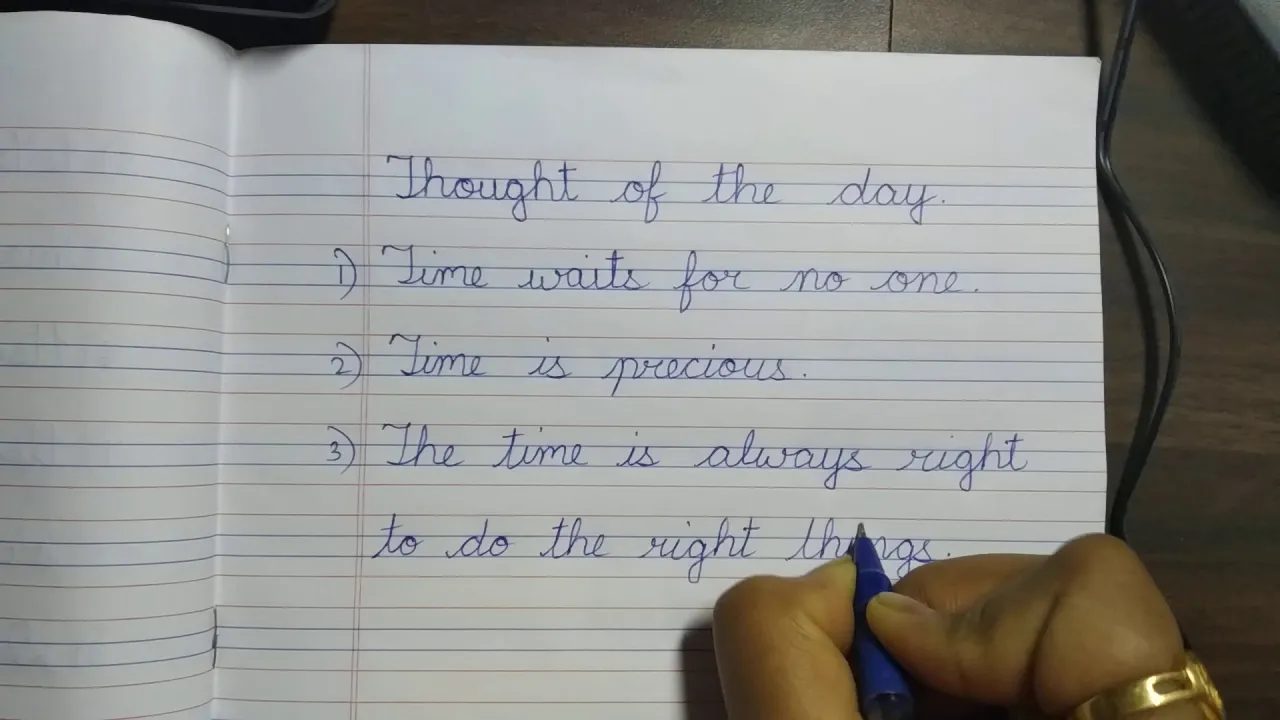 Thought of the day.
1) Time waits for no one.
2) Time is precious.
3) The time is always right
to do the right things.